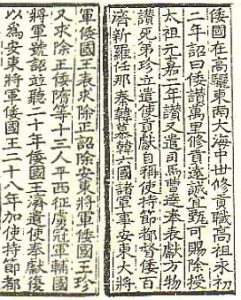 倭國在高驪東南大海中世修貢職高祖永初
二年詔曰倭讚萬里修貢遠誠宜甄可賜除授
太祖元嘉二年讚又遣司馬曹達奉表獻方物
讚死弟珍立遣使貢獻自稱使持節都督倭百
濟新羅任那秦韓慕韓六國諸軍事安東大將
軍倭國王表求除正詔除安東將軍倭國王珍
又求除正倭隋等十三人平西征虜冠軍輔國
將軍號詔並聽二十年倭國王濟遣使奉獻復
以為安東將軍倭國王二十八年加使持節都